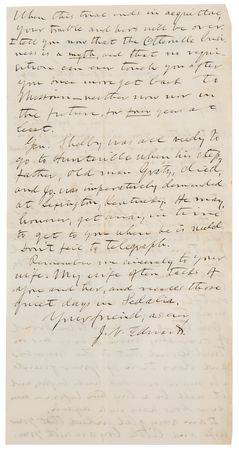 When this trial ends in acquittal,
your trouble and hers will be over.
I tell you now that the Otterville busi-
ness is a myth, and that no requi-
sition can ever touch you after
you once more get back to
Missouri—neither now nor in
the future, for four years at
least.
Gen. Shelby was all ready to
go to Huntsville when his step
father, old man Gratz, died,
and go, was imperatively demanded
at Lexington, Kentucky. He may,
however, get away in time
to get to you when he is needed.
Don't fail to telegraph.
Remember me sincerely to your
wife. My wife often talks of
you and her, and misses those
quiet days in Sedalia.
Your friend, as ever,
J. N. Edwards.